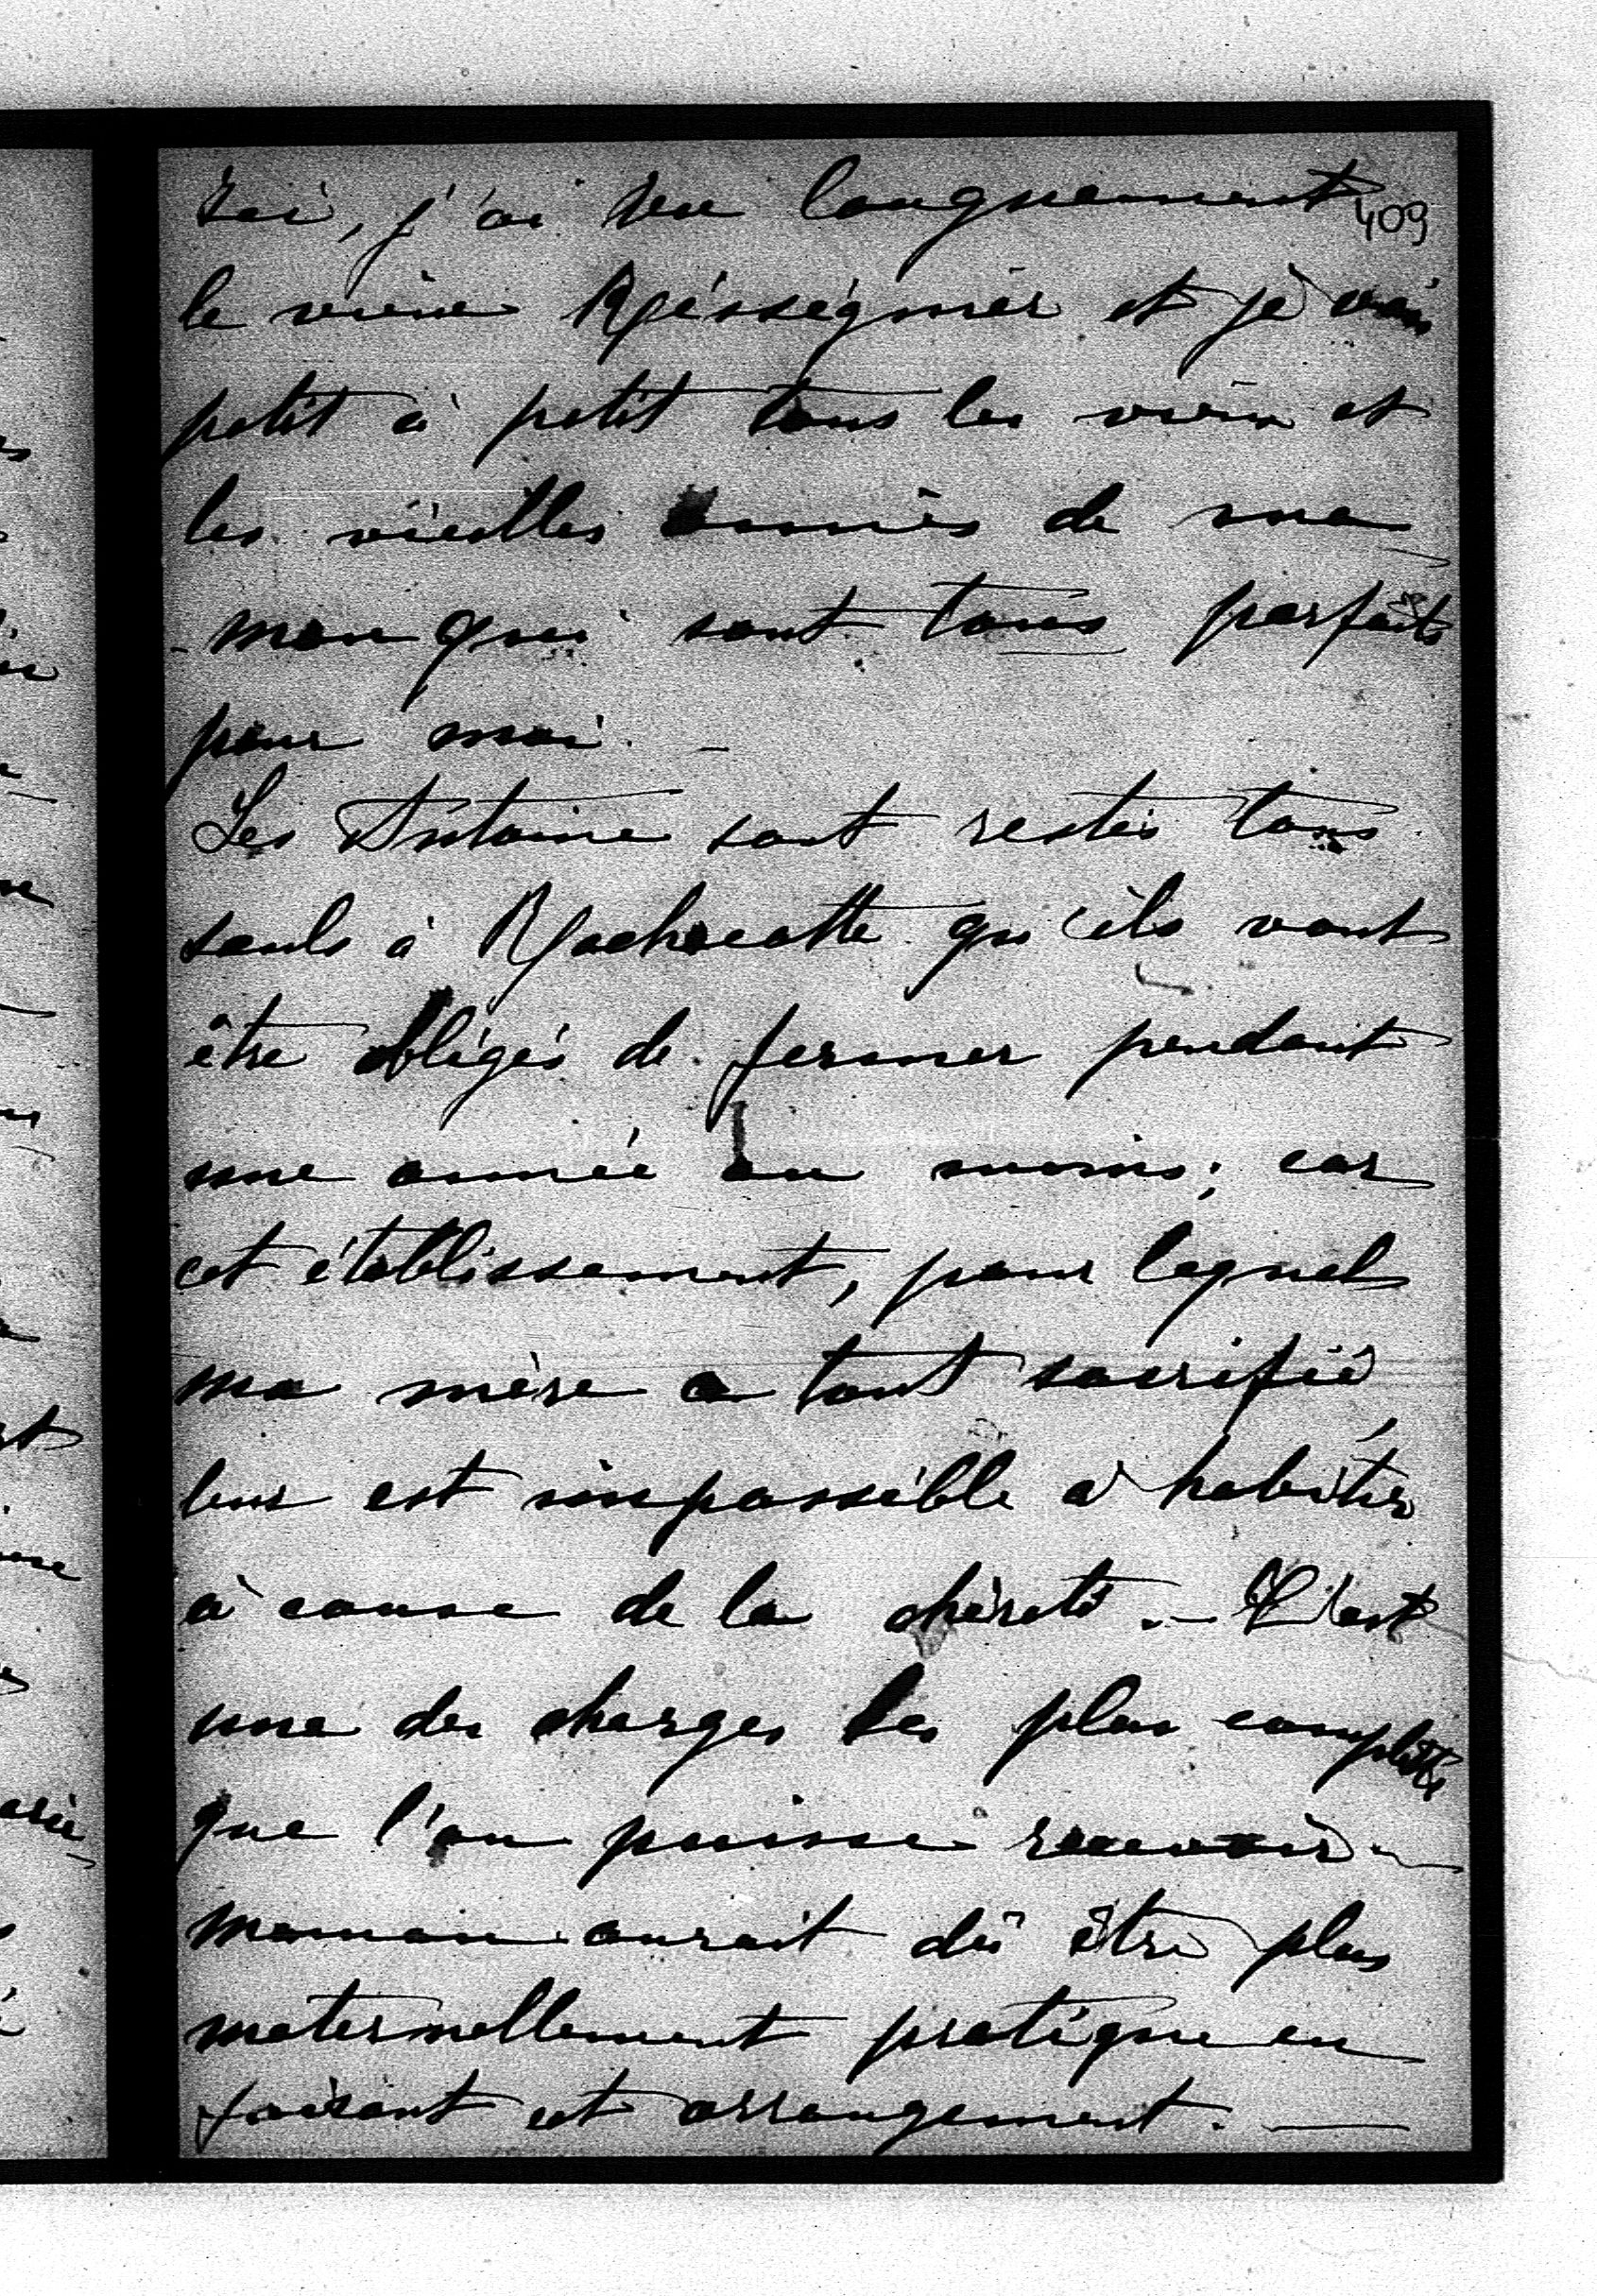 ici, j'ai vu longuement
409
le vieux Rességuier et je vois
petit à petit tous les vieux et
les vieilles amies de ma-
-man qui sont tous parfaits
pour moi. —
Les Antoine sont restés tous
seuls à Rochecotte qu'ils vont
être obligés de fermer pendant
une année au moins; car
cet établissement, pour lequel
ma mère a tout sacrifié,
leur est impossible à habiter
à cause de la chèreté. — C'est
une des charges les plus complètes
que l'on puisse recevoir —
maman aurait dû être plus
maternellement pratique en
faisant cet arrangement. —